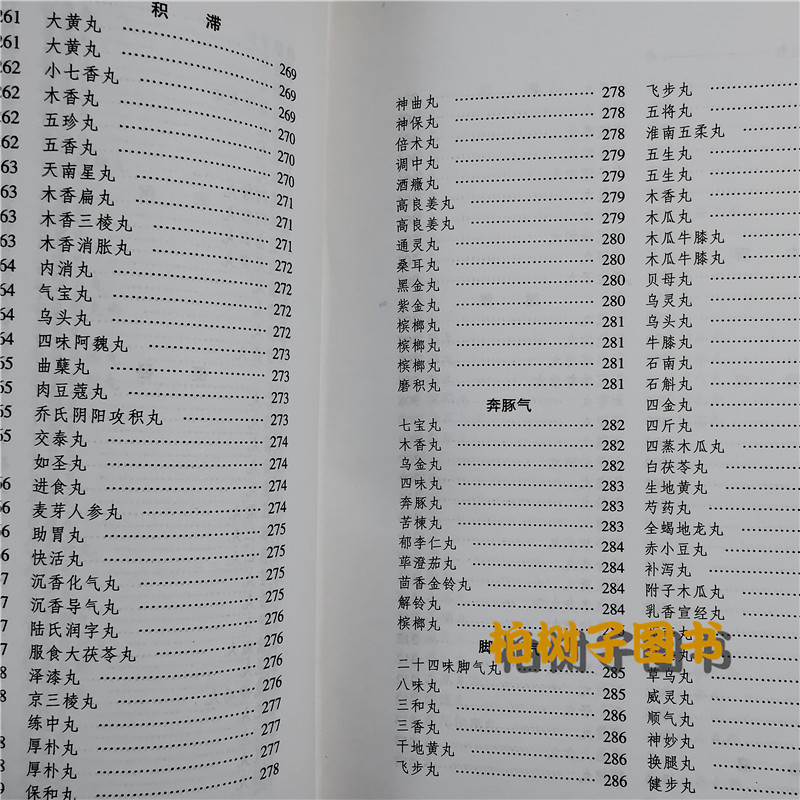 积 滞
261 大黄丸 269
261 大黄丸 269
262 小七香丸 269
262 木香丸 270
262 五珍丸 270
262 五香丸 270
63 天南星丸 271
63 木香扁丸 271
63 木香三棱丸 271
63 木香消胀丸 272
64 内消丸 272
64 气宝丸 272
64 乌头丸 272
64 四味阿魏丸 273
65 曲蘖丸 273
65 肉豆蔻丸 273
65 乔氏阴阳攻积丸 273
65 交泰丸 274
如圣丸 274
66 进食丸 274
6 麦芽人参丸 274
6 助胃丸 275
6 快活丸 275
7 沉香化气丸 275
7 沉香导气丸 276
7 陆氏润字丸 276
7 服食大茯苓丸 276
8 泽漆丸 276
8 京三棱丸 276
练中丸 277
8 厚朴丸 277
8 厚朴丸 277
9 保和丸 278
神曲丸 278
神保丸 278
倍术丸 278
调中丸 279
酒癥丸 279
高良姜丸 279
高良姜丸 279
通灵丸 280
桑耳丸 280
黑金丸 280
紫金丸 280
槟榔丸 281
槟榔丸 281
槟榔丸 281
磨积丸 281
奔豚气
七宝丸 282
木香丸 282
乌金丸 282
四味丸 283
奔豚丸 283
苦楝丸 283
郁李仁丸 284
荜澄茄丸 284
茴香金铃丸 284
解铃丸 284
槟榔丸
脚 气
二十四味脚气丸 285
八味丸 285
三和丸 286
三香丸 286
干地黄丸 286
飞步丸 286
飞步丸
五将丸
淮南五柔丸
五生丸
五生丸
木香丸
木瓜丸
木瓜牛膝丸
木瓜牛膝丸
贝母丸
乌灵丸
乌头丸
牛膝丸
石南丸
石斛丸
四金丸
四斤丸
四蒸木瓜丸
白茯苓丸
生地黄丸
芍药丸
全蝎地龙丸
赤小豆丸
补泻丸
附子木瓜丸
乳香宣经丸
草乌丸
威灵丸
顺气丸
神妙丸
换腿丸
健步丸
柏树子图书